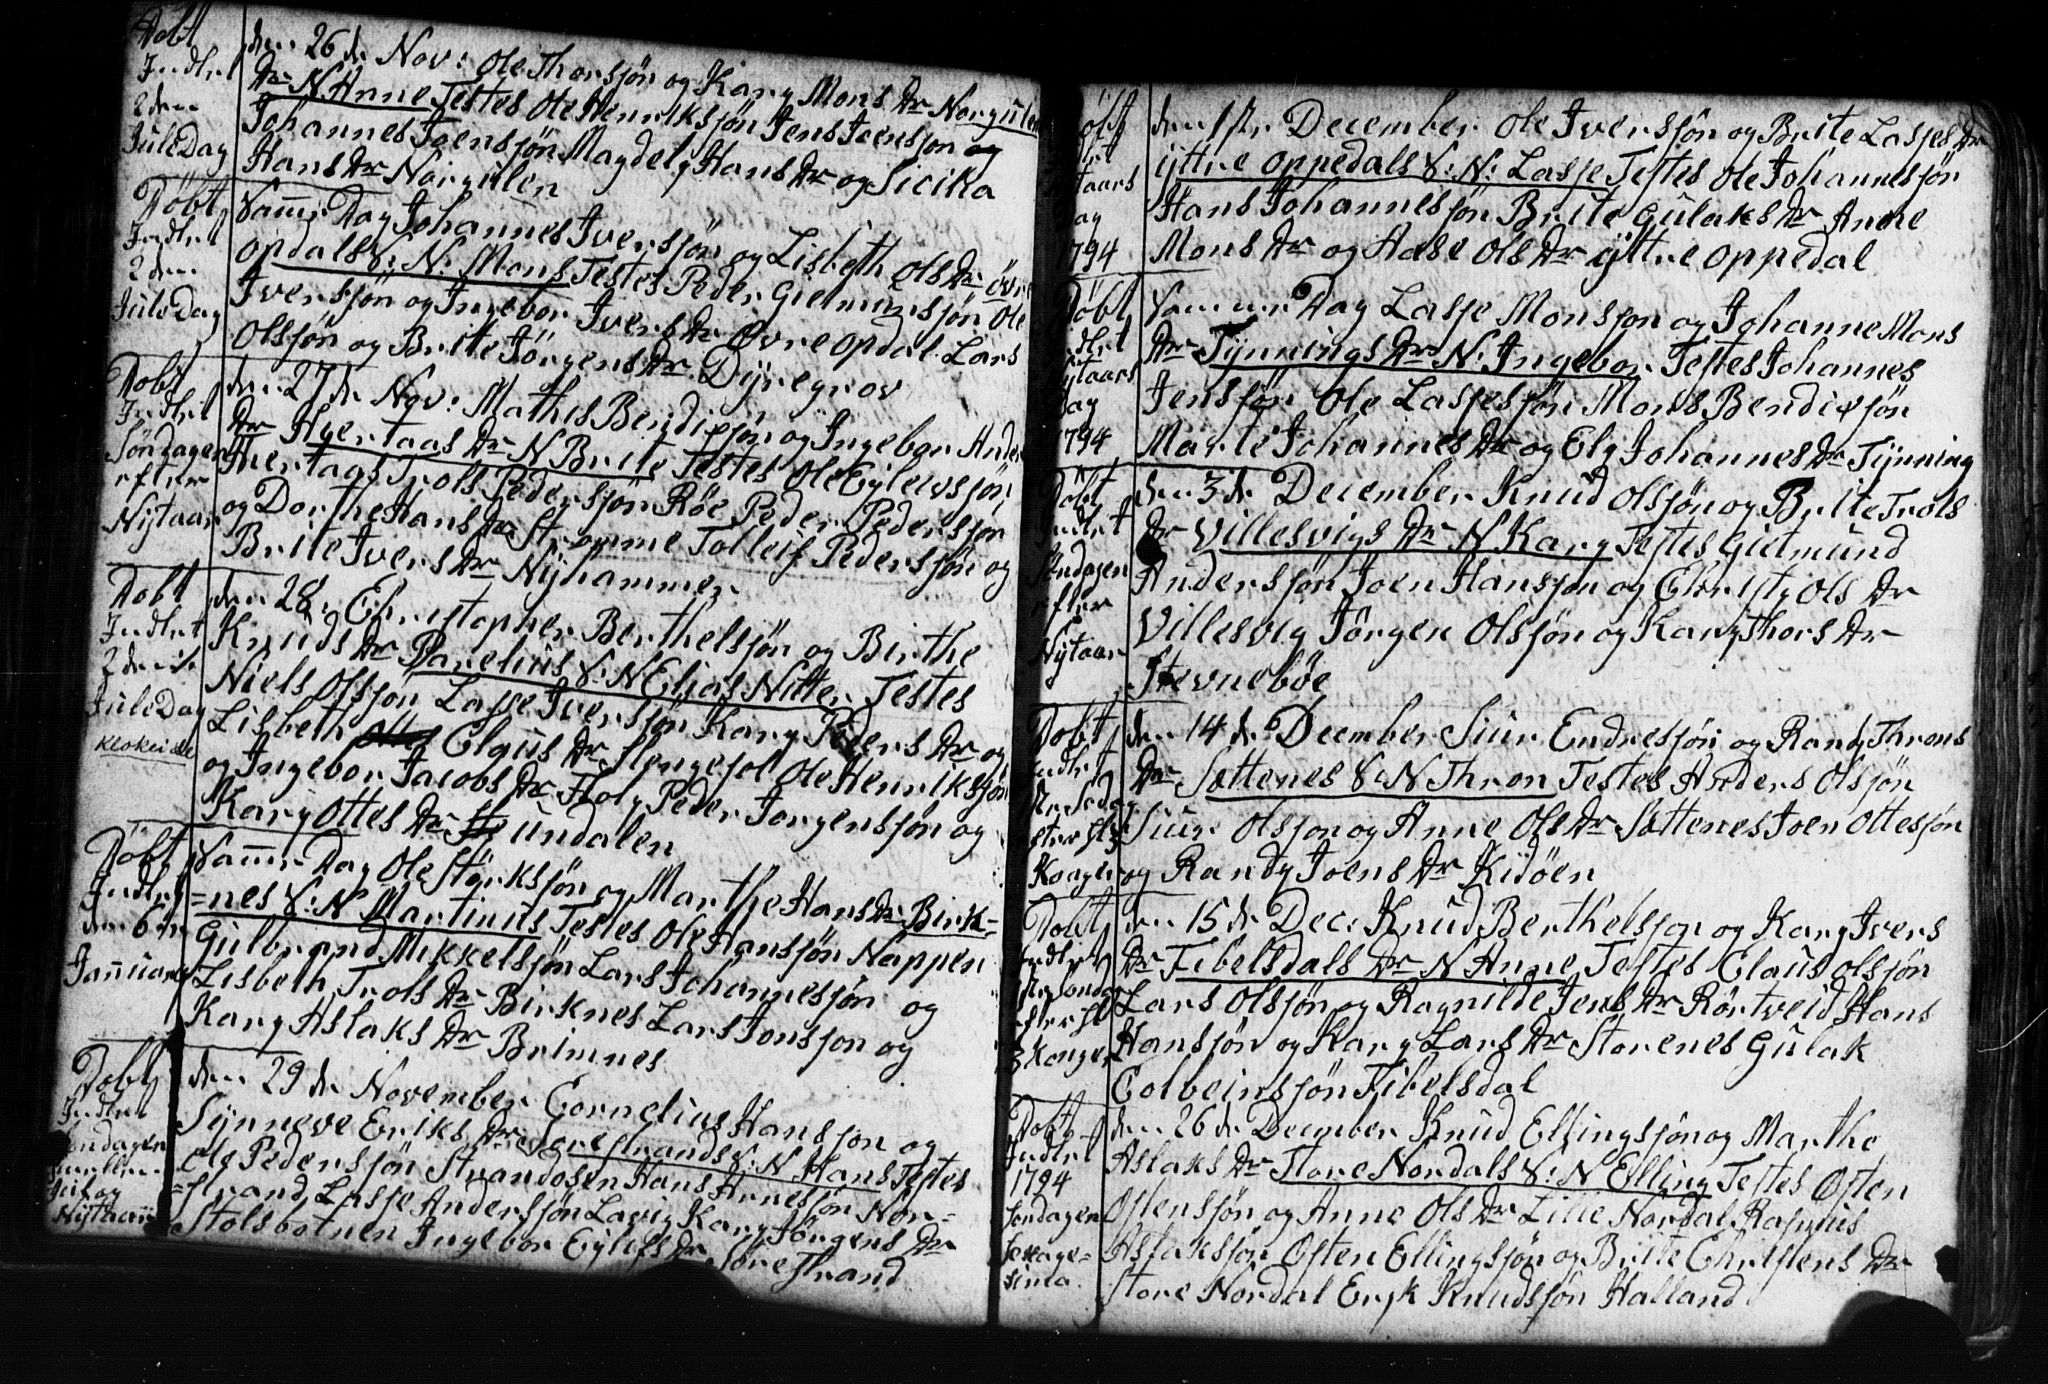 Døbt
Indlet
2den
JuleDag
den 26de Nov: Ole Thorsjøn og Kary Mons Dr Norgulen
Dr N. Anne Testes Ole Henriksjøn Jens Jensjøn og
Johannes Joensjøn Magdely Hans Dr og Sicika
Hans Dr Norgulen
Døbt
Indlet
2den
JuleDag
Samme Dag Johannes Iversjøn og Lisbeth Ols Dr øvre
opdals S: N: Mons Testes Peder Gietmunsjøn Ole
Iversjøn og Ingebor Ivers Dr Øvre opdal Lars
Olsjøn og Brite Jørgens Dr Dyregrov
Døbt
Indlet
Søndagen
efter
Nytaar
den 27de Nov: Mathis Bendixsjøn og Ingebor Anders
Dr Hiertaas Dr N Brite Testes Ole Eylevsjøn
Hiertaas Trols Pedersjøn Røe Peder Pedersjøn
og Dorthe Hans Dr Strømme Tolleif Pedersjøn og
Brite Ivers Dr Nyhammer
Døbt
Indlet
2den
JuleDag
den 28. Christopher Berthelsjøn og Birthe
Knuds Dr Parelius S: N Elias Nitter Testes
Niels Olsjøn Lasse Iversjøn Kary Peders Dr og
Lisbeth Claus Dr Ole Henriksjøn
og Ingebor Jacobs Dr Peder Jørgensjøn og
Kary Ottes Dr
Døbt
Indlet
den 6te
Januarii
Samme Dag Ole Størksjøn og Marthe Hans Dr Birk=
=nes S: N Martinus Testes Ole Hansjøn Nappen
Gulbrand Mikkelsjøn Lars Johannesjøn og
Lisbeth Trols Dr Birknes Lars Jonsjøn og
Kary Aslaks Dr Brimnes
Døbt
Indlet
Søndagen
Juul og
Nytaar
den 29de November Cornelius Hansjøn og
Synneve Eriks Dr Sørestrands S: N Hans Testes
Ole Pedersjøn Strandosen Hans Arnesjøn Nor=
=strand Lasse Andersjøn Lavig Kary Jørgens Dr
Stølsbotnen Ingebor Eylefs Dr Sørestrand
Nytaars
Dag
1794
den 1ste December Ole Iversjøn og Brite Lasses Dr
Yttre Oppedals S: N: Lasse Testes Ole Johannesjøn
Hans Johannesjøn Brite Gulaks Dr Anne
Mons Dr og Aase Ols Dr yttre Oppedal
Døbt
Indlet
Nytaars
Dag
1794
Samme Dag Lasse Monsjøn og Johanne Mons
Dr Tynnings Dr N. Ingebor Testes Johannes
Jensjøn Ole Lassesjøn Mons Bendixsjøn
Marte Johannes Dr og Ely Johannes Dr Tynning
Døbt
Indlet
Søndagen
efter
Nytaar
den 3de December Knud Olsjøn og Brite Trols
Dr Villesvigs Dr N Kary Testes Gietmund
Andersjøn Joen Hansjøn og Christy Ols Dr
Villesvig Jørgen Olsjøn og Kary Thors Dr
Stevnebøe
Døbt
Indlet
Konger
den 14de December Siur Endresjøn og Randy Throns
Dr Sættenes S: N Thron Testes Anders Olsjøn
Siur Olsjøn og Anne Ols Dr Sættenes Joen Ottesjøn
og Randy Joens Dr Kidøen
Døbt
Indlet
efter Hl
3 Konger
den 15de Dec: Knud Berthelsjøn og Kary Ivers
Dr Fibelsdals Dr N Anne Testes Claus Olsjøn
Lars Olsjøn og Ragnilde Jens Dr Rørtveid Hans
Hansjøn og Kary Lars Dr Storenes Gulak
Colbeinsjøn Fibelsdal
Døbt
Indlet
1794
Søndagen
Sexage=
sima
den 26de December Knud Ellingsjøn og Marthe
Aslaks Dr Store Nordals S: N Elling Testes Østen
Østensjøn og Anne Ols Dr Lille Nordal Rasmus
Aslaksjøn Østen Ellingsjøn og Brite Christens Dr
Store Nordal Erik Knudsjøn Halland